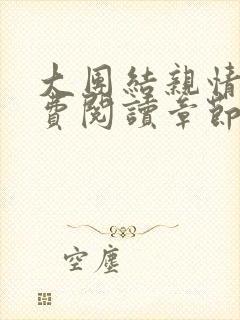 大團結親情
費閱讀章節
空塵